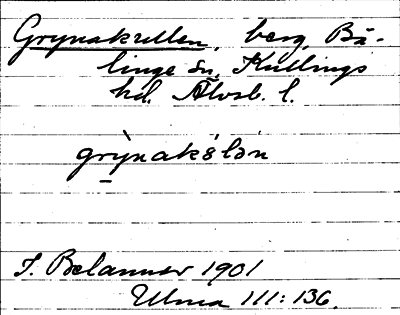 Grynakullen, berg, Bä-
linge sn, Kullings
hd. Älvsb. l.
grỳnakɵ̀lən
J. Belanner 1901
Ulma 111:136.